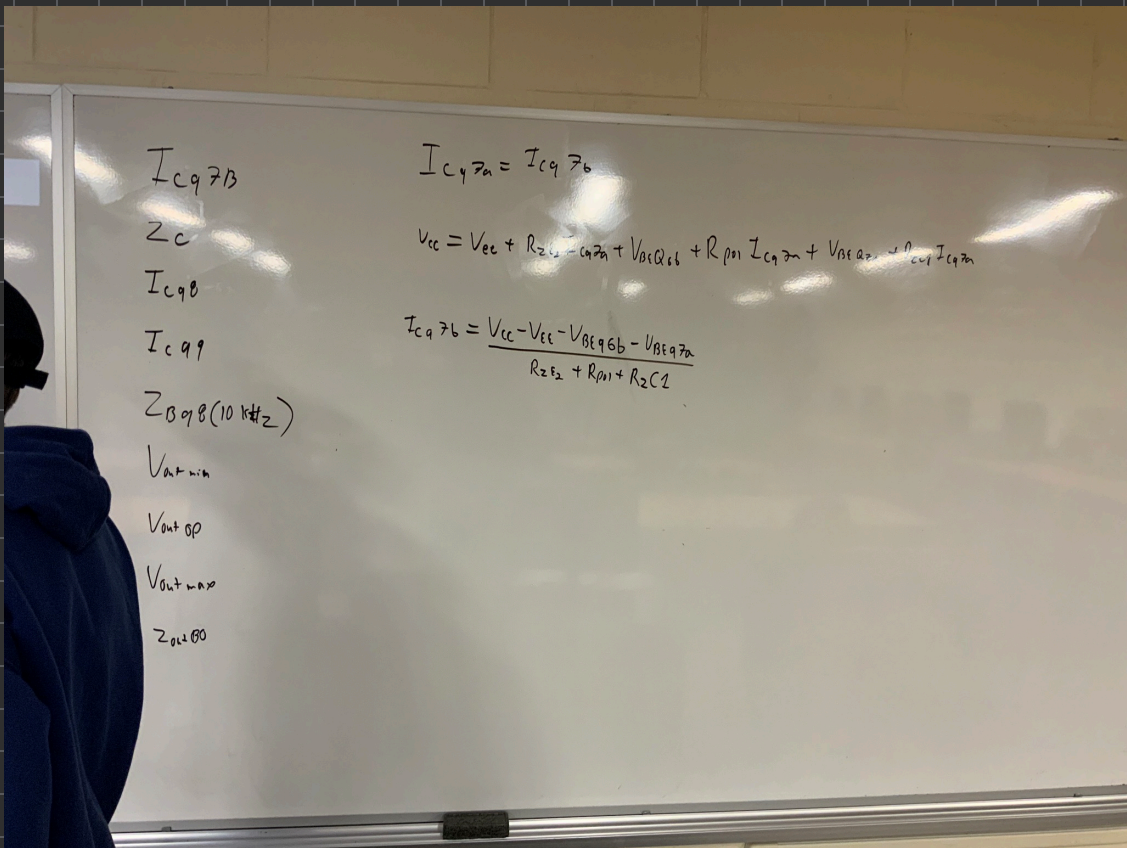 Icq7B
Zc
Icq8
Icq9
ZBq8(10 kHz)
Vout min
Vout op
Vout max
Zout BO
Icq7a = Icq7b
Vcc = Vee + Icq7a + VBEQ6b + Rpo1 Icq7a + Icq7a
Icq7b = Vcc - VEE - VBEq6b - VBEq7a
RzE2 + Rpo1 + RzC1